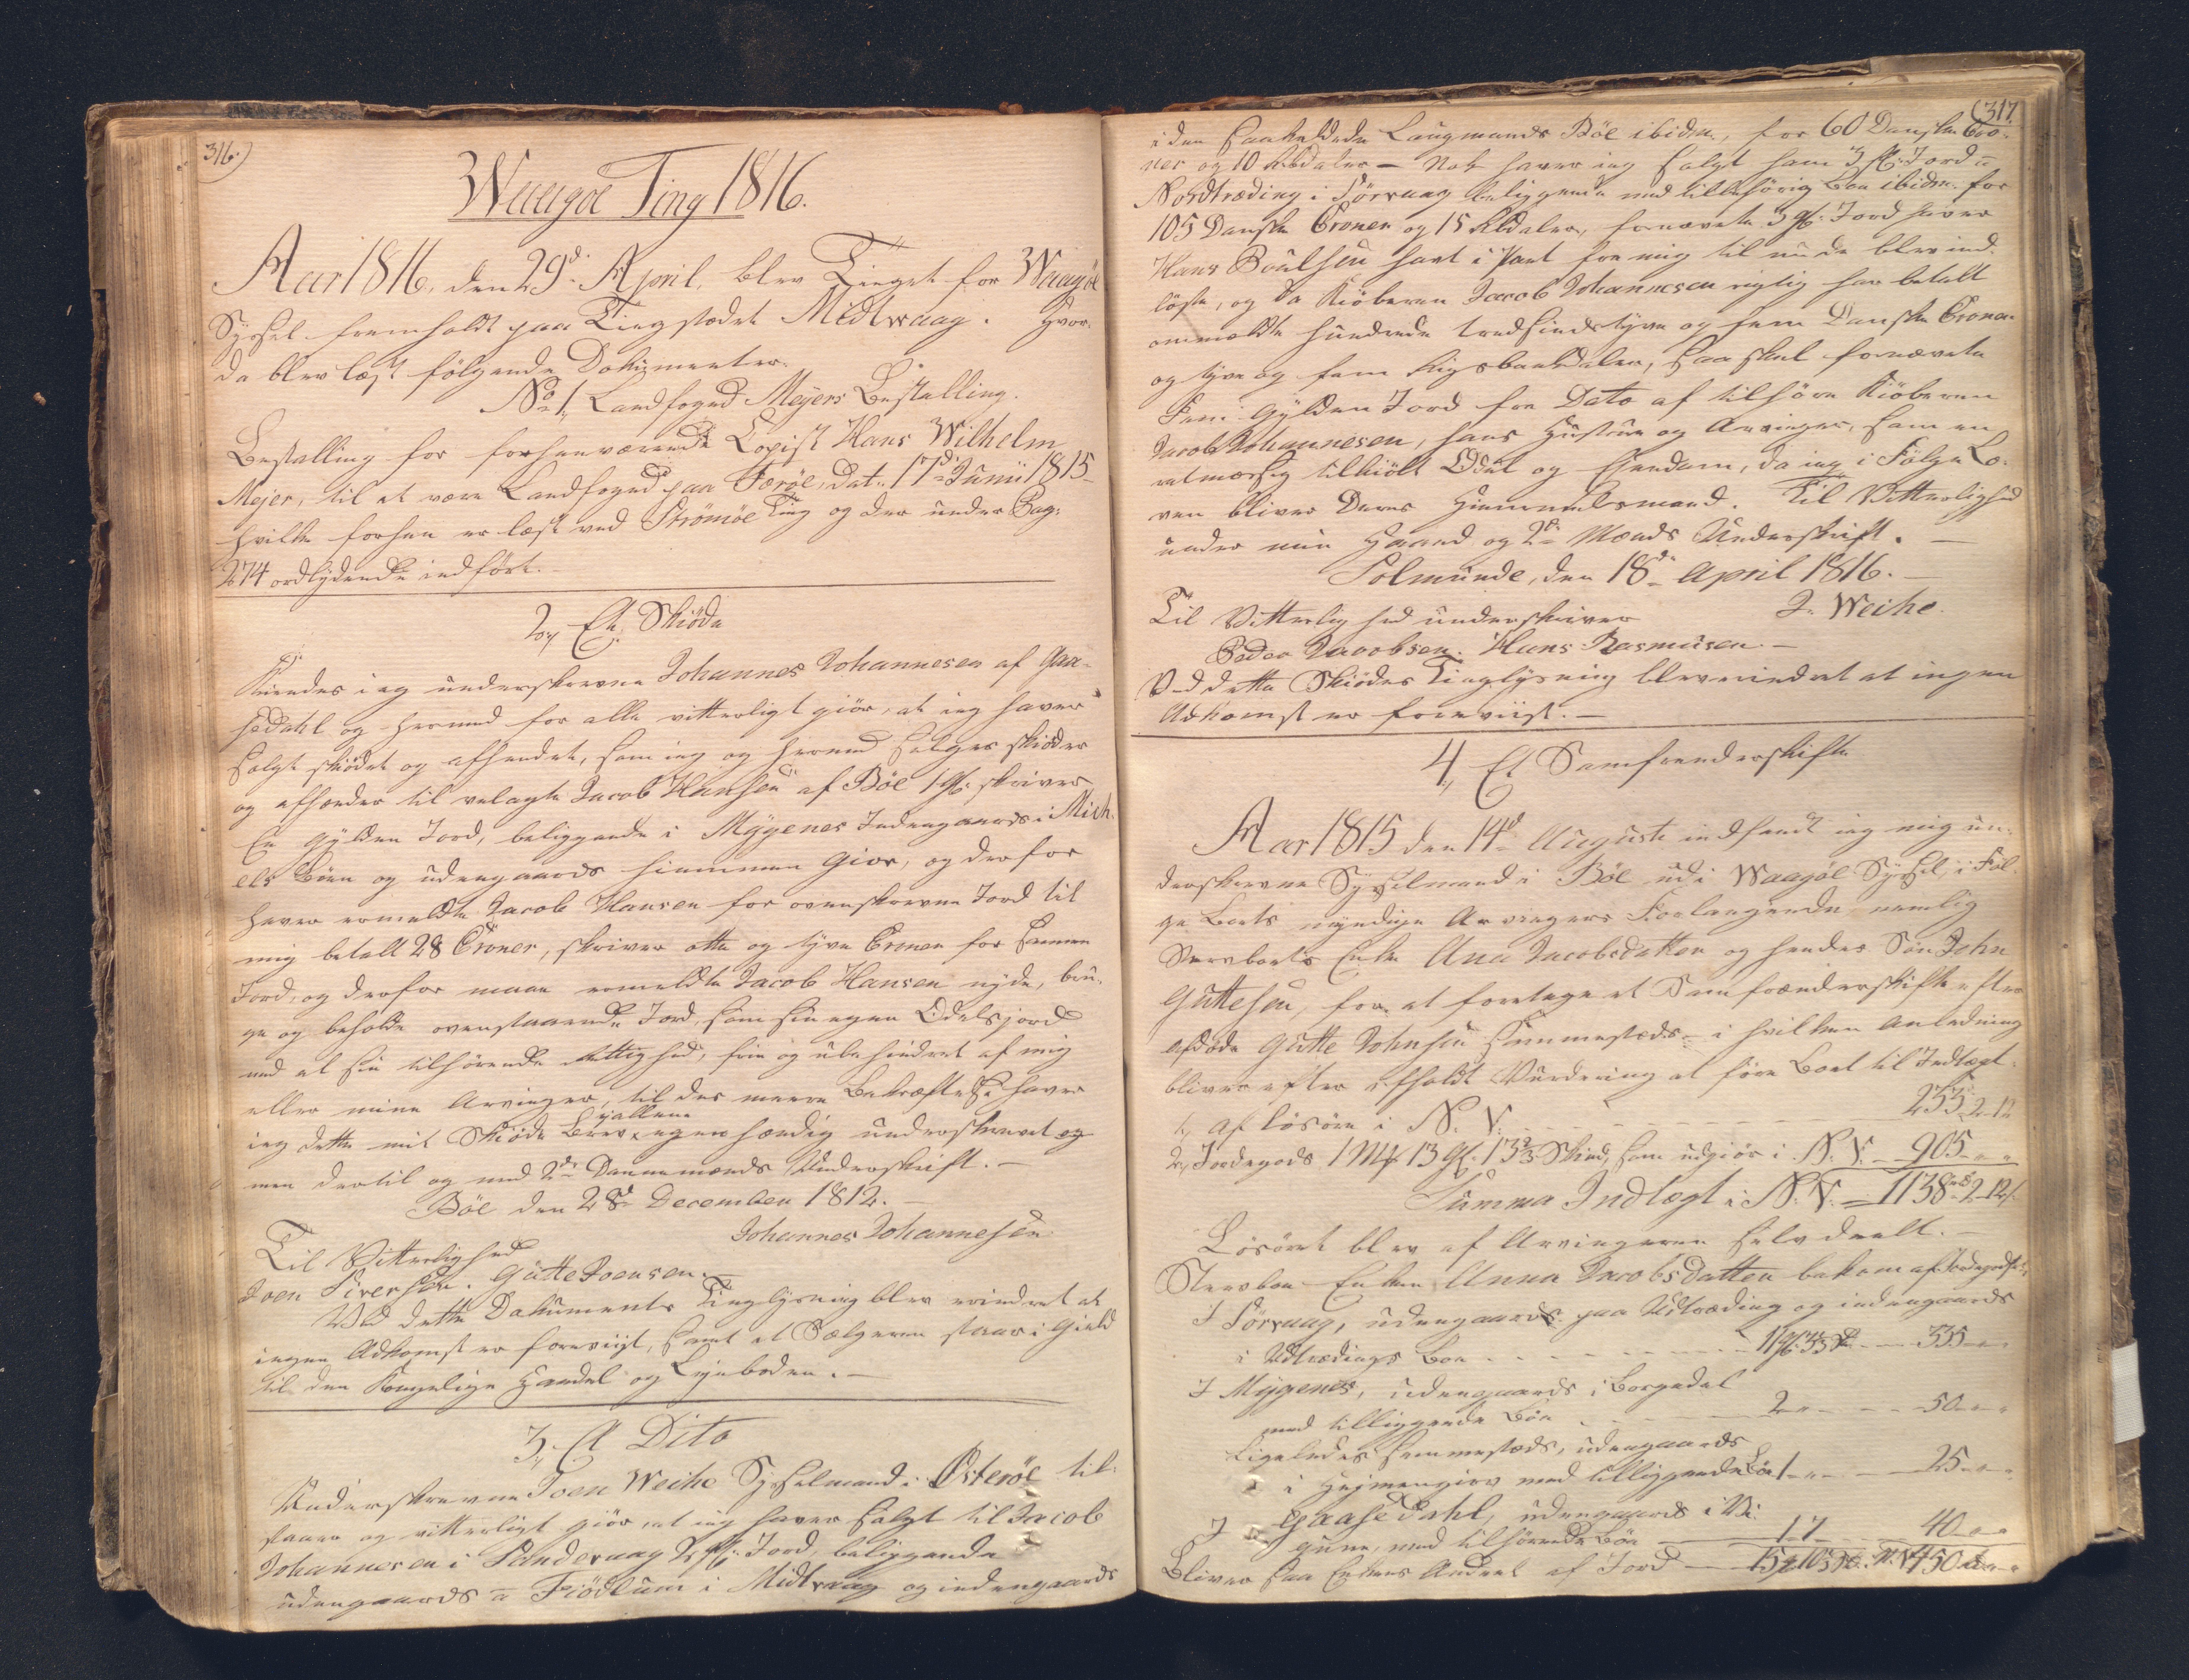 316.)
Waagöe Ting 1816.
Aar 1816, den 29d: April, blev Tinget for Waagöe
Syssel fremholdt paa Tingstædet Midtvaag. Hvor-
da blev læst følgende Dokumenter.
No 1, Landfoged Meyers Bestalling.
Bestalling for forhenværende Copist Hans Wilhelm
Mejer, til at være Landfoged paa Færöe, dat: 17d: Junii 1815
hvilke forhen er læst ved Strömöe Ting og der under Pag:
274 ordlydende indfört.
2, Et Skiöde
Kiendes ieg underskrevne Johannes Johannesen af Gaa-
sedahl og hermed for alle vitterligt giör, at ieg haver
solgt skiödet og afhendet, som ieg og hermed sælger skiöder
og afhænder til velagte Jacob Hansen af Böe 1 G: skriver
En Gylden Jord, beliggende i Mygenes Indengaards i Mich-
els Böen og udengaards Giov, og derfor
haver ermeldte Jacob Hansen for ovenskrevne Jord til
mig betalt 28 Croner, skriver otte og tyve Croner for samme
Jord, og derfor maae ermeldte Jacob Hansen nyde, bru-
ge og beholde ovenstaaende Jord, som sin egen Odelsjord
med al sin tilhörende Rettighed, frie og ubehindret af mig
eller mine Arvinger, til des meere Bekræftelse haver
ieg dette mit Skiöde Brev egenhændig underskrevet og
men dertil og med 2de Dannemænds Underskrift.
Böe den 28d December 1812.
Johannes Johannesen
Til Vitterlighed
Joen Siversen. Gutte Joensen.
Ved dette Dokuments Tinglysning blev erindret at
ingen Adkomst er foreviist, samt at Sælgeren staar i Gield
til den Kongelige Handel og Leyeboden.
3, Et Dito
Underskrevne Joen Weihe Sysselmand i Österöe til-
staaer og vitterligt giör, at ieg haver solgt til Jacob
Johannesen i Sandevaag 2 G: Jord, beliggende
udengaards a Fiödlum i Midtvaag og indengaards
(317
i den saakaldede Laugmands Böe ibidm, for 60 Danske Cro-
ner og 10 Rbdaler - Nok haver ieg solgt ham 3 G: Jord a
Nordtræding i Sörvaag beliggende med tillehörig Böe ibidm for
105 Danske Croner og 15 Rbdaler, fornævnte 3 G: Jord haver
Hans Poulsen havt i Pant for mig til nu de blev ind-
löste, og da Kiöberen Jacob Johannesen rigtig har betalt
ommeldte hundrede tredsindstyve og fem Danske Croner
og tyve og fem Rigsbankdaler, saa skal fornævnte
Fem Gylden Jord fra Dato af tilhöre Kiöberen
Jacob Johannesen, hans Hustrue og Arvinger, som en
retmæssig tilkiöbt Odel og Eyendom, da ieg i Fölge Lo-
ven bliver Deres Hiemmelsmand. Til Vitterlighed
under min Haand og 2de Mænds Underskrift.
Solmunde, den 18de April 1816.
Til Vitterlighed underskriver J. Weihe.
Peder Jacobsen. Hans Rasmusen.
Ved dette Skiödes Tinglysning blev erindret at ingen
Adkomst er foreviist.
4, Et Samfrenderskifte
Aar 1815 den 14d Auguste indfandt ieg mig un-
derskrevne Sysselmand i Böe udi Waagöe Syssel, i Föl-
ge Boets myndige Arvingers Forlangende nemlig
Stervboets Enke Anna Jacobsdatter og hendes Sön John
Guttesen, for at foretage et Samfrænderskifte efter
afdöde Gutte Johnsen sammestæds i hvilken Anledning
bliver efter afholdt Vurdering at före Boet til Indtægt
1, af Lösöre i N. V. 233 2 12
2, Jordegods 1 M 13 G: 13 2/3 Skind, som udgiör i N. V. 905
Summa Indtægt i N. V. 1138 2 12
Lösöret blev af Arvingerne selv deelt.
Stervboe Enken Anna Jacobs Datter bekom af Jordegodset
I Sörvaag, udengaards paa Udtræding og indengaards
i Udtrædings Böe 335
I Mygenes, udengaards i Borgedal
med tilliggende Böe 2 50
Ligeledes sammestæds, udengaards
i Heimengiov med tilliggende Böe 1 25
I Gaasedahl, udengaards i Vi-
gune, med tilhörende Böe 17 40
Bliver saa Enkens Andeel af Jord 450